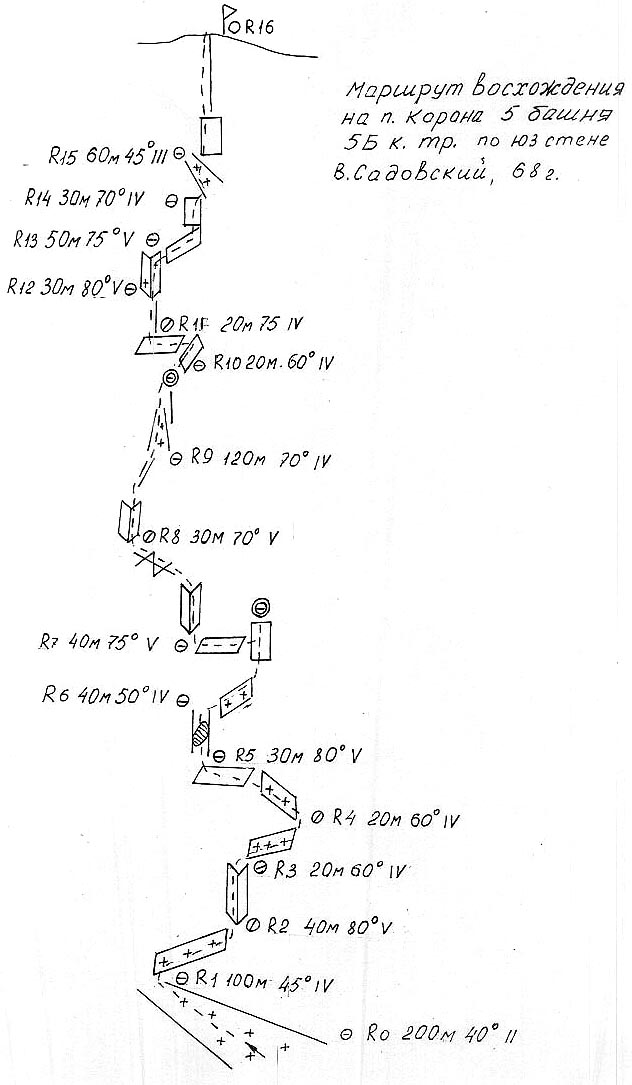 R16
Маршрут восхождения
на п. Корона 5 башня
5Б к. тр. по юз стене
В. Садовский, 68г.
R15 60м 45° III
R14 30м 70° IV
R13 50м 75° V
R12 30м 80° V
R11 20м 75 IV
R10 20м. 60° IV
R9 120м 70° IV
R8 30м 70° V
R7 40м 75° V
R6 40м 50° IV
R5 30м 80° V
R4 20м 60° IV
R3 20м 60° IV
R2 40м 80° V
R1 100м 45° IV
R0 200м 40° II